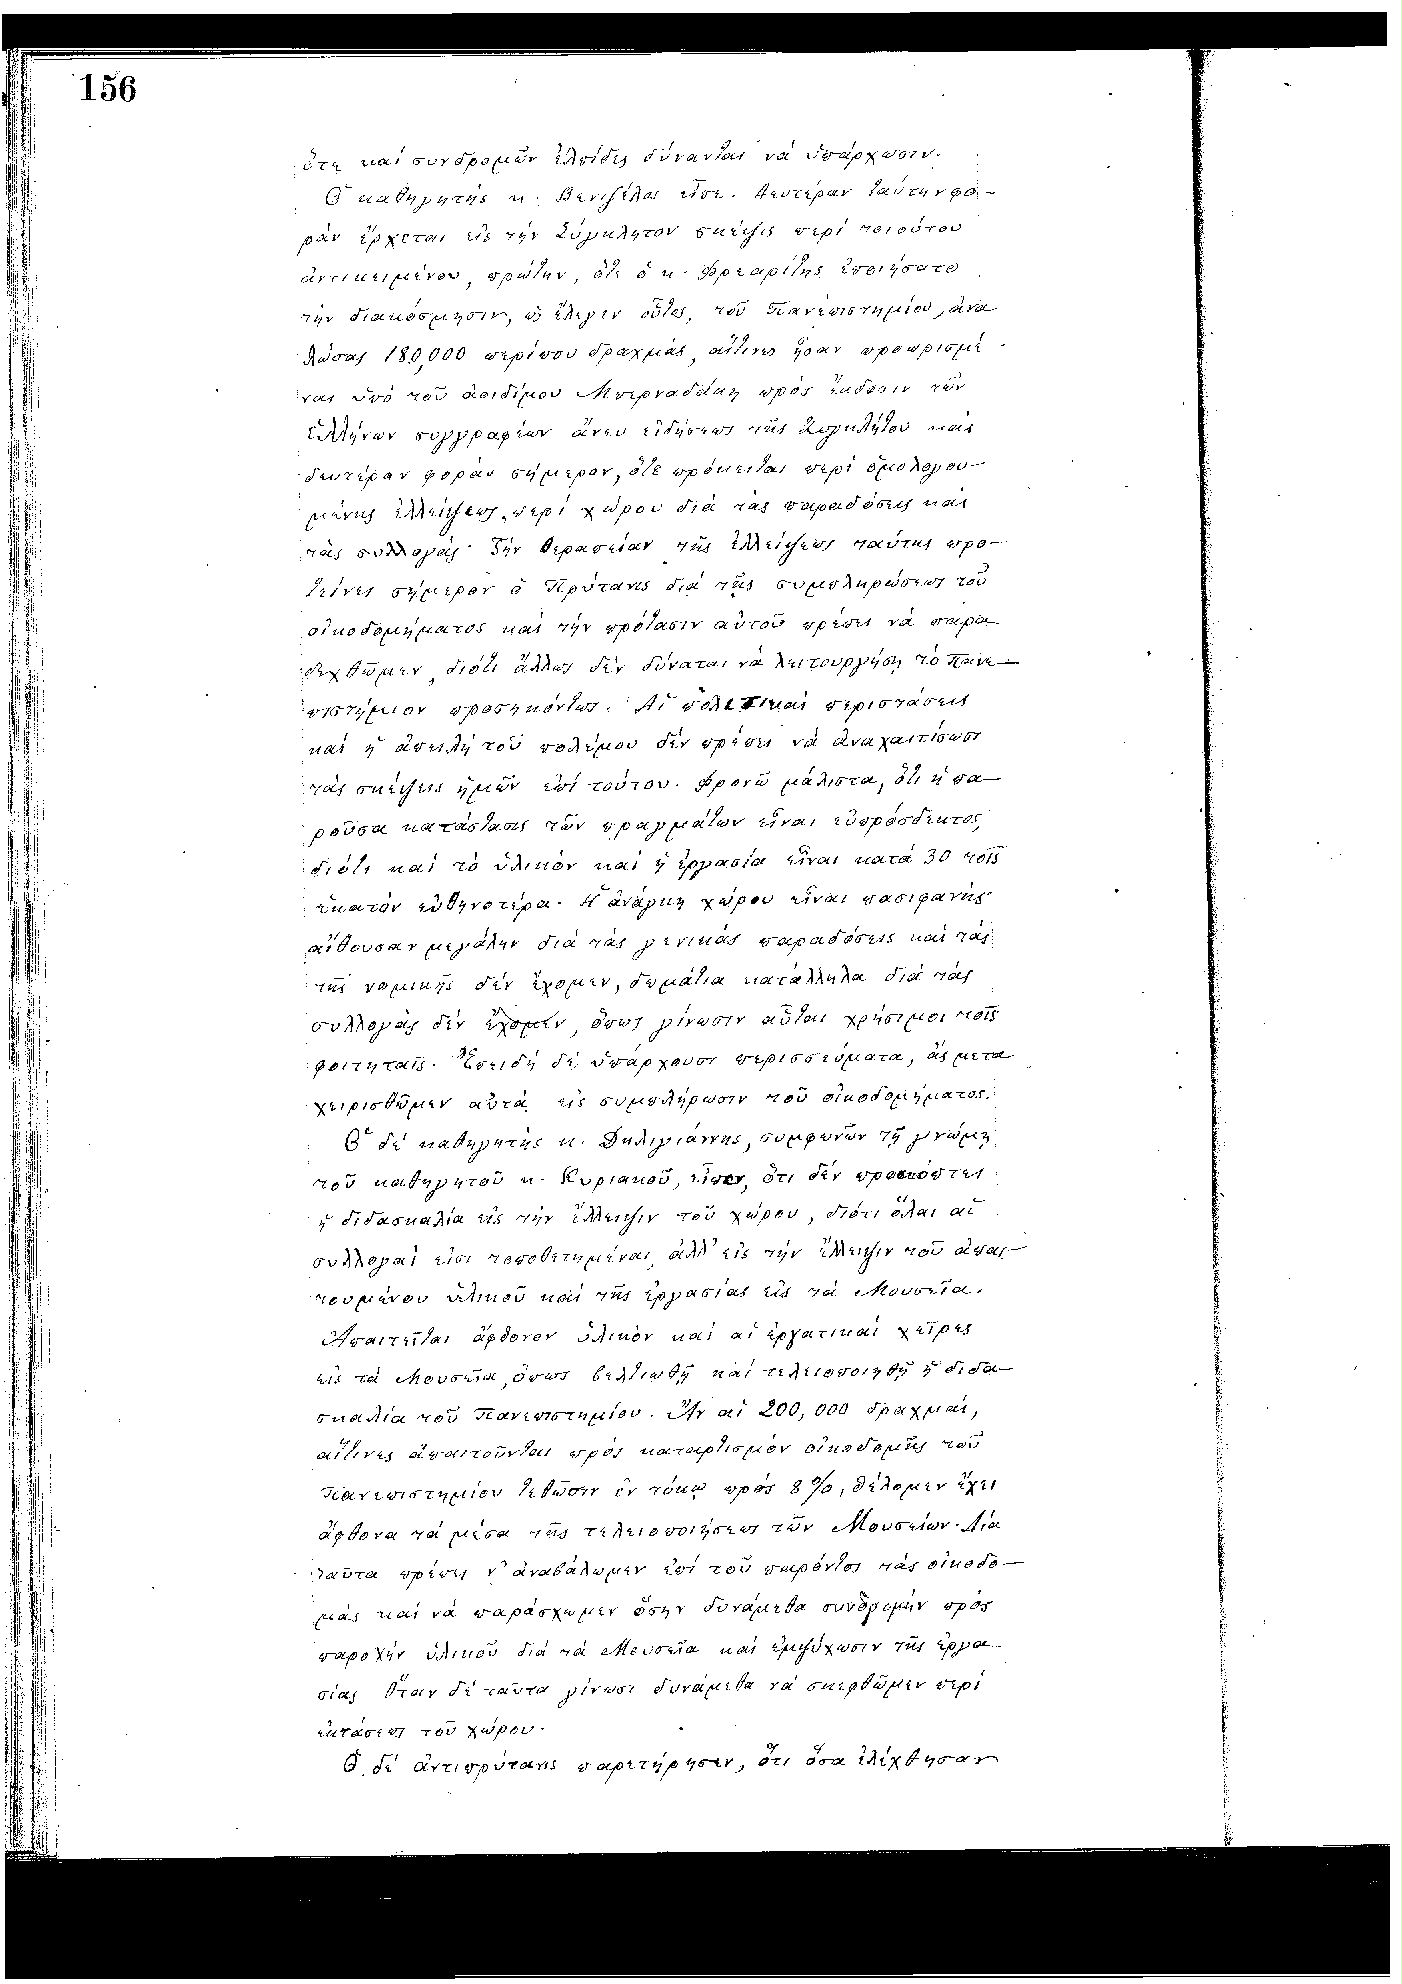 156
ἔτη καὶ συνδρομῶν ἐλπίδες δύνανται νὰ ὑπάρχωσιν.
Ὁ καθηγητὴς κ. Βενιζέλος εἶπε. Δευτέραν ταύτην φο-
ρὰν ἔρχεται εἰς τὴν Σύγκλητον σκέψις περὶ τοιούτου
ἀντικειμένου, πρώτην, ὅτε ὁ κ. Φρεαρίτης ἐποιήσατο
τὴν διακόσμησιν, ὡς ἔλεγεν οὗτος, τοῦ Πανεπιστημίου, ἀνα
λώσας 180,000 περίπου δραχμὰς, αἵτινες ἦσαν προωρισμέ
ναι ὑπὸ τοῦ ἀοιδίμου Μπερναδάκη πρὸς ἔκδοσιν τῶν
Ἑλλήνων συγγραφέων ἄνευ εἰδήσεως τῆς Συγκλήτου καὶ
δευτέραν φορὰν σήμερον, ὅτε πρόκειται περὶ ὁμολογου-
μένης ἐλλείψεως περὶ χώρου διὰ τὰς παραδόσεις καὶ
τὰς συλλογάς. Τὴν θεραπείαν τῆς ἐλλείψεως ταύτης προ-
τείνει σήμερον ὁ Πρύτανις διὰ τῆς συμπληρώσεως τοῦ
οἰκοδομήματος καὶ τὴν πρότασιν αὐτοῦ πρέπει νὰ παρα
δεχθῶμεν, διότι ἄλλως δὲν δύναται νὰ λειτουργήσῃ τὸ Πανε-
πιστήμιον προσηκόντως. Αἱ πολιτικαὶ περιστάσεις
καὶ ἡ ἀπειλὴ τοῦ πολέμου δὲν πρέπει νὰ ἀναχαιτίσωσι
τὰς σκέψεις ἡμῶν ἐπὶ τούτου. Φρονῶ μάλιστα, ὅτι ἡ πα-
ροῦσα κατάστασις τῶν πραγμάτων εἶναι εὐπρόσδεκτος,
διότι καὶ τὸ ὑλικὸν καὶ ἡ ἐργασία εἶναι κατὰ 30 τοῖς
ἑκατὸν εὐθηνοτέρα. Ἡ ἀνάγκη χώρου εἶναι πασιφανὴς
αἴθουσαν μεγάλην διὰ τὰς γενικὰς παραδόσεις καὶ τὰς
τῆς νομικῆς δὲν ἔχομεν, δωμάτια κατάλληλα διὰ τὰς
συλλογὰς δὲν ἔχομεν, ὅπως γίνωσιν αὗται χρήσιμοι τοῖς
φοιτηταῖς. Ἐπειδὴ δὲ ὑπάρχουσι περισσεύματα, ἂς μετα
χειρισθῶμεν αὐτὰ εἰς συμπλήρωσιν τοῦ οἰκοδομήματος.
Ὁ δὲ καθηγητὴς κ. Δηλιγιάννης, συμφωνῶν τῇ γνώμῃ
τοῦ καθηγητοῦ κ. Κυριακοῦ, εἶπεν, ὅτι δὲν προσκόπτει
ἡ διδασκαλία εἰς τὴν ἔλλειψιν τοῦ χώρου, διότι ὅλαι αἱ
συλλογαὶ εἰσὶ τοποθετημέναι, ἀλλ' εἰς τὴν ἔλλειψιν τοῦ ἀπαι-
τουμένου ὑλικοῦ καὶ τῆς ἐργασίας εἰς τὰ Μουσεῖα.
Ἀπαιτεῖται ἄφθονον ὑλικὸν καὶ αἱ ἐργατικαὶ χεῖρες
εἰς τὰ Μουσεῖα, ὅπως βελτιωθῇ καὶ τελειοποιηθῇ ἡ διδα-
σκαλία τοῦ Πανεπιστημίου. Ἂν αἱ 200,000 δραχμαί,
αἵτινες ἀπαιτοῦνται πρὸς καταρτισμὸν οἰκοδομῆς τοῦ
Πανεπιστημίου τεθῶσιν ἐν τόκῳ πρὸς 8 %, θέλομεν ἔχει
ἄφθονα τὰ μέσα τῆς τελειοποιήσεως τῶν Μουσείων. Διὰ
ταῦτα πρέπει ν' ἀναβάλωμεν ἐπὶ τοῦ παρόντος τὰς οἰκοδο-
μὰς καὶ νὰ παράσχωμεν ὅσην δυνάμεθα συνδρομὴν πρὸς
παροχὴν ὑλικοῦ διὰ τὰ Μουσεῖα καὶ ἐμψύχωσιν τῆς ἐργα-
σίας. Ὅταν δὲ ταῦτα γίνωσι δυνάμεθα νὰ σκεφθῶμεν περὶ
ἐκτάσεως τοῦ χώρου.
Ὁ δὲ ἀντιπρύτανις παρετήρησεν, ὅτι ὅσα ἐλέχθησαν